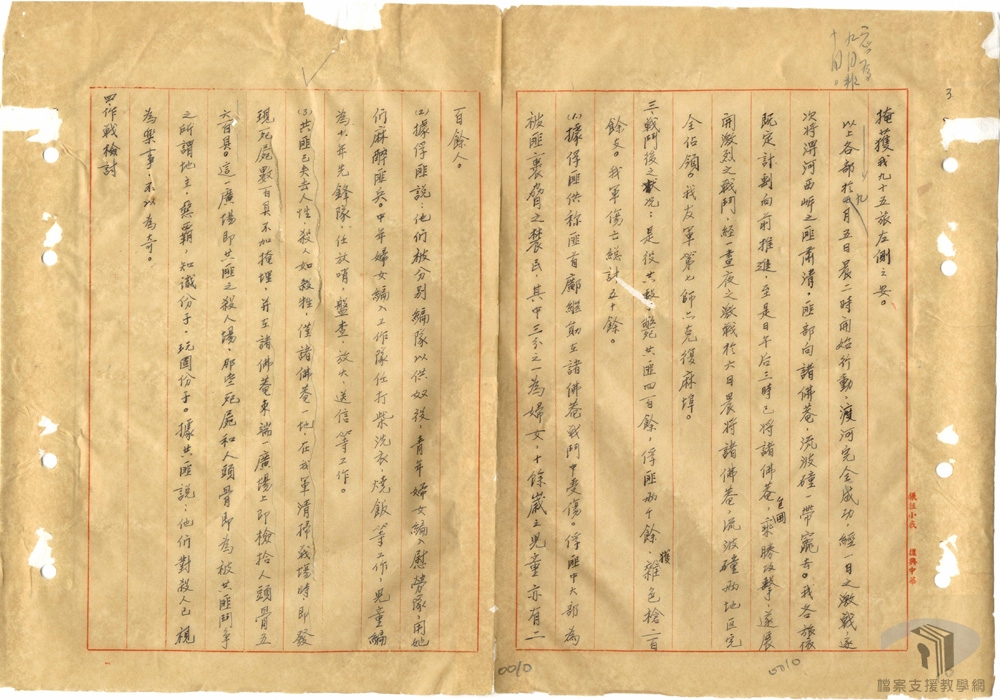 3
掩護我九十五旅左側之安。
以上各部於九月五日晨二時開始行動，渡河完全成功，經一日之激戰，逐
次將淠河西岸之匪肅清，匪部向諸佛菴，流波䃥一帶竄去。我各旅依
既定計劃向前推進，至是日午后三時已將諸佛菴，包圍乘勝攻擊，遂展
開激烈之戰鬥，經一晝夜之激戰於六日晨將諸佛菴，流波䃥兩地區完
全佔領。我友軍第七師亦克復麻埠。
三、戰鬥後之狀况：是役共斃共匪四百餘，俘匪兩千餘，獲雜色槍一百
餘支。我軍傷亡總計五十餘。
⑴據俘匪供称匪首鄺繼勛在諸佛菴戰鬥中受傷。俘匪中大部為
被匪裹脅之農民，其中三分之一為婦女，十餘歲之兒童亦有二
百餘人。
⑵據俘匪說：他們被分别編隊以供奴役，青年婦女編入慰勞隊，用她
们麻醉匪兵。中年婦女編入工作隊任打柴洗衣，燒飯等工作，兒童編
為少年先鋒隊，任放哨，盤查，放火，送信等工作。
⑶共匪已失去人性殺人如殺牲，僅諸佛菴一地在我軍清掃戰場時即發
現死屍數百具不加掩埋，并在諸佛菴東端一廣場上即檢拾人頭骨五
六百具。這一廣場即共匪之殺人場，那些死屍和人頭骨即為被共匪鬥爭
之所謂地主，惡霸，知識份子，玩固份子。據共匪說：他們對殺人已視
為樂事，不以為奇。
四、作戰檢討
0010
0010
檔案支援教學網